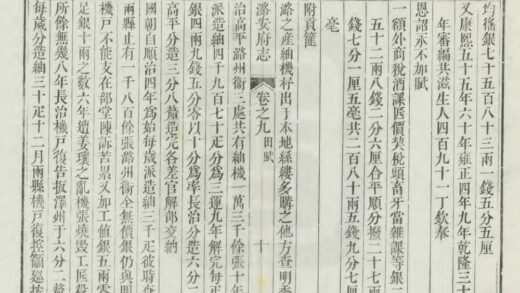 均徭銀七千五百八十三兩一錢五分五厘
又康熙五十五年六十年雍正四年九年乾隆三十
年審編共滋生人四百九十一丁欽奉
恩詔永不加賦
一額外商稅酒課匠價契稅頭畜牙當雜課等銀二
五十二兩八錢二分六厘合平順分撥二十七兩
錢七分一厘五毫共二百八十兩五錢九分七厘
毫
附貢篚
潞之產紬機杼出于本地絲縷多購之他方查明季
潞安府志 卷之九 田賦 十
治高平潞州衛三處共有紬機一萬三千餘張十年
派造紬四千九百七十疋分為三運九年解完每疋
銀四兩九錢五分零以十分爲率長治分造六分二
高平分造三分八釐造完各差官解部交納
國朝自順治四年為始每歲派造紬三千疋彼時查
兩縣止有一千八百餘張潞州衛全無價銀仍與明
機戶不能支在部堂陳訴苦累又加工値銀五兩零
足銀十兩之數六年遭姜瓖之亂機張燒毀工匠殺
所餘無幾八年長治機戶復告扳澤州于六分二釐
每歲分造紬三十疋十二月兩縣機戶復控籲廵按